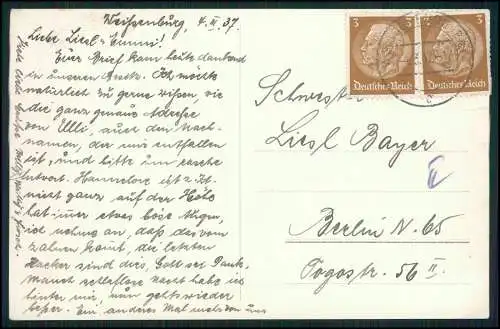 Weißenburg, 4. II. 37.
Liebe Liesl-Emmi!
Euer Brief kam heute dankend
in unseren Besitz. Ich möchte
natürlich zu gerne wissen wie
die ganz genaue Adresse
von Ulli, auch den Nach-
namen, der mir entfallen
ist, und bitte um rasche
Antwort. Hannelore ist z. Zt.
nicht ganz auf der Höhe
hat immer etwas böse Augen,
ich nehme an, daß das vom
Zahnen kommt, die letzten
Hacker sind dies, Gott sei Dank,
manch schlaflose Nacht habe ich
hinter mir, nun geht's wieder
besser. Ein anderes Mal mehr von uns
Viele Grüße
3 3
Deutsches Reich Deutsches Reich
Schwester
Liesl Bayer
II
Berlin N. 65
Togostr. 56 II.